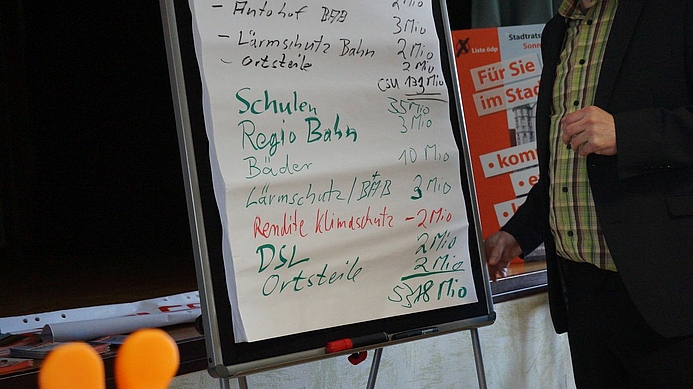 - Autohof BAB 3 Mio
- Lärmschutz Bahn 2 Mio
- Ortsteile 2 Mio
CSU
Schulen 35 Mio
Regio Bahn 3 Mio
Bäder 10 Mio
Lärmschutz/BAB 3 Mio
Rendite Klimaschutz -2 Mio
DSL 2 Mio
Ortsteile 2 Mio
Mio
Liste ödp
Stadtrats
Sonn
Für Sie
im Stad
• kom